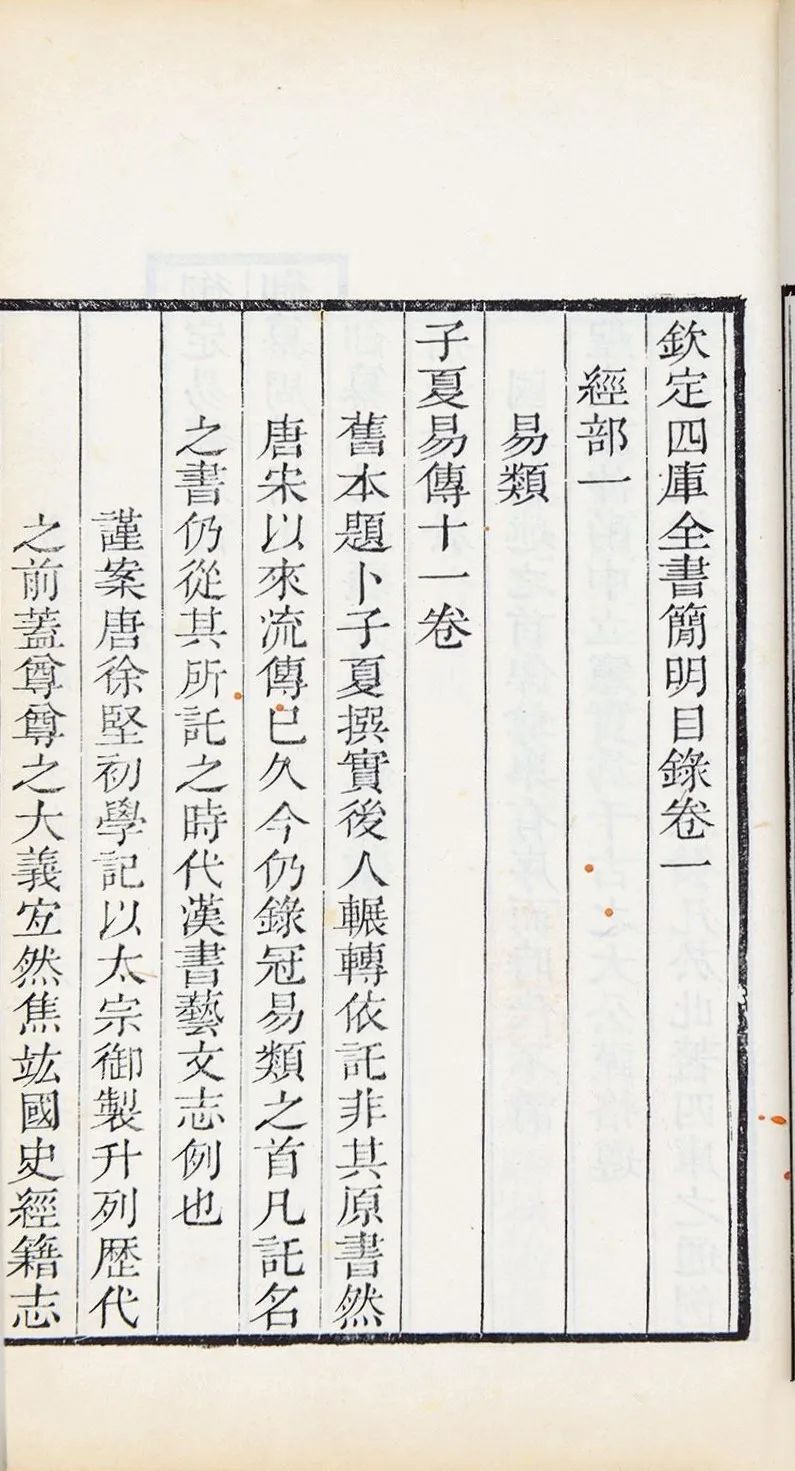 欽定四庫全書簡明目錄卷一
經部一
易類
子夏易傳十一卷
舊本題卜子夏撰實後人輾轉依託非其原書然
唐宋以來流傳已久今仍錄冠易類之首凡託名
之書仍從其所託之時代漢書藝文志例也
謹案唐徐堅初學記以太宗御製升列歷代
之前蓋尊尊之大義宜然焦竑國史經籍志